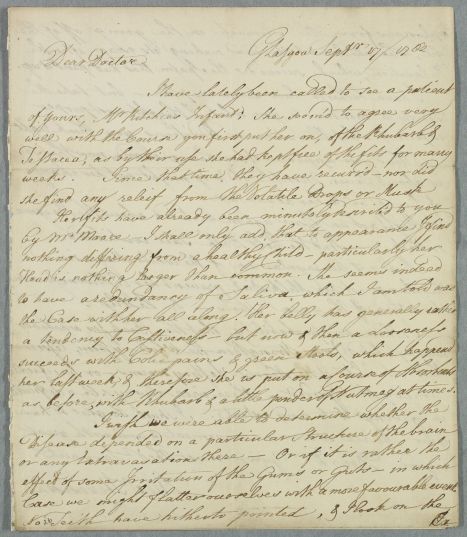 Glasgow Septr. 17/ 1782
Dear Doctor
I have lately been called to see a patient
of yours, Mr Ritchies Infant: She seemd to agree very
well with the Course you first put her on, of the Rhubarb &
, as by their use she had kept free of the fits for many
weeks. Since that time, they have recurrd - nor did
she find any releif from the Volatile Drops or Musk
Her fits have already been minutely described to you
by Mr Moore. I shall only add that to appearance I find
nothing differing from a healthy Child - particularly her
Head is not larger than common. She seems indeed
to have a redundancy of Saliva, which I am told was
the Case with her all along. Her belly, has generally rather
a tendency to Costiveness - but now & then a Looseness
succeeds with Colic pains & green stools, which happend
her last week & therefore she is put on a Course of
as before, with Rhubarb & a little powder of Nutmeg at times.
I wish we were able to determine whether the
Disease depended on a particular Structure of the brain
or any Extravasation there - Or if it is rather the
effect of some Irritation of the Gums or Guts - in which
Case we might flatter ourselves with a more favourable event
No Teeth have hitherto pointed, & I look on the